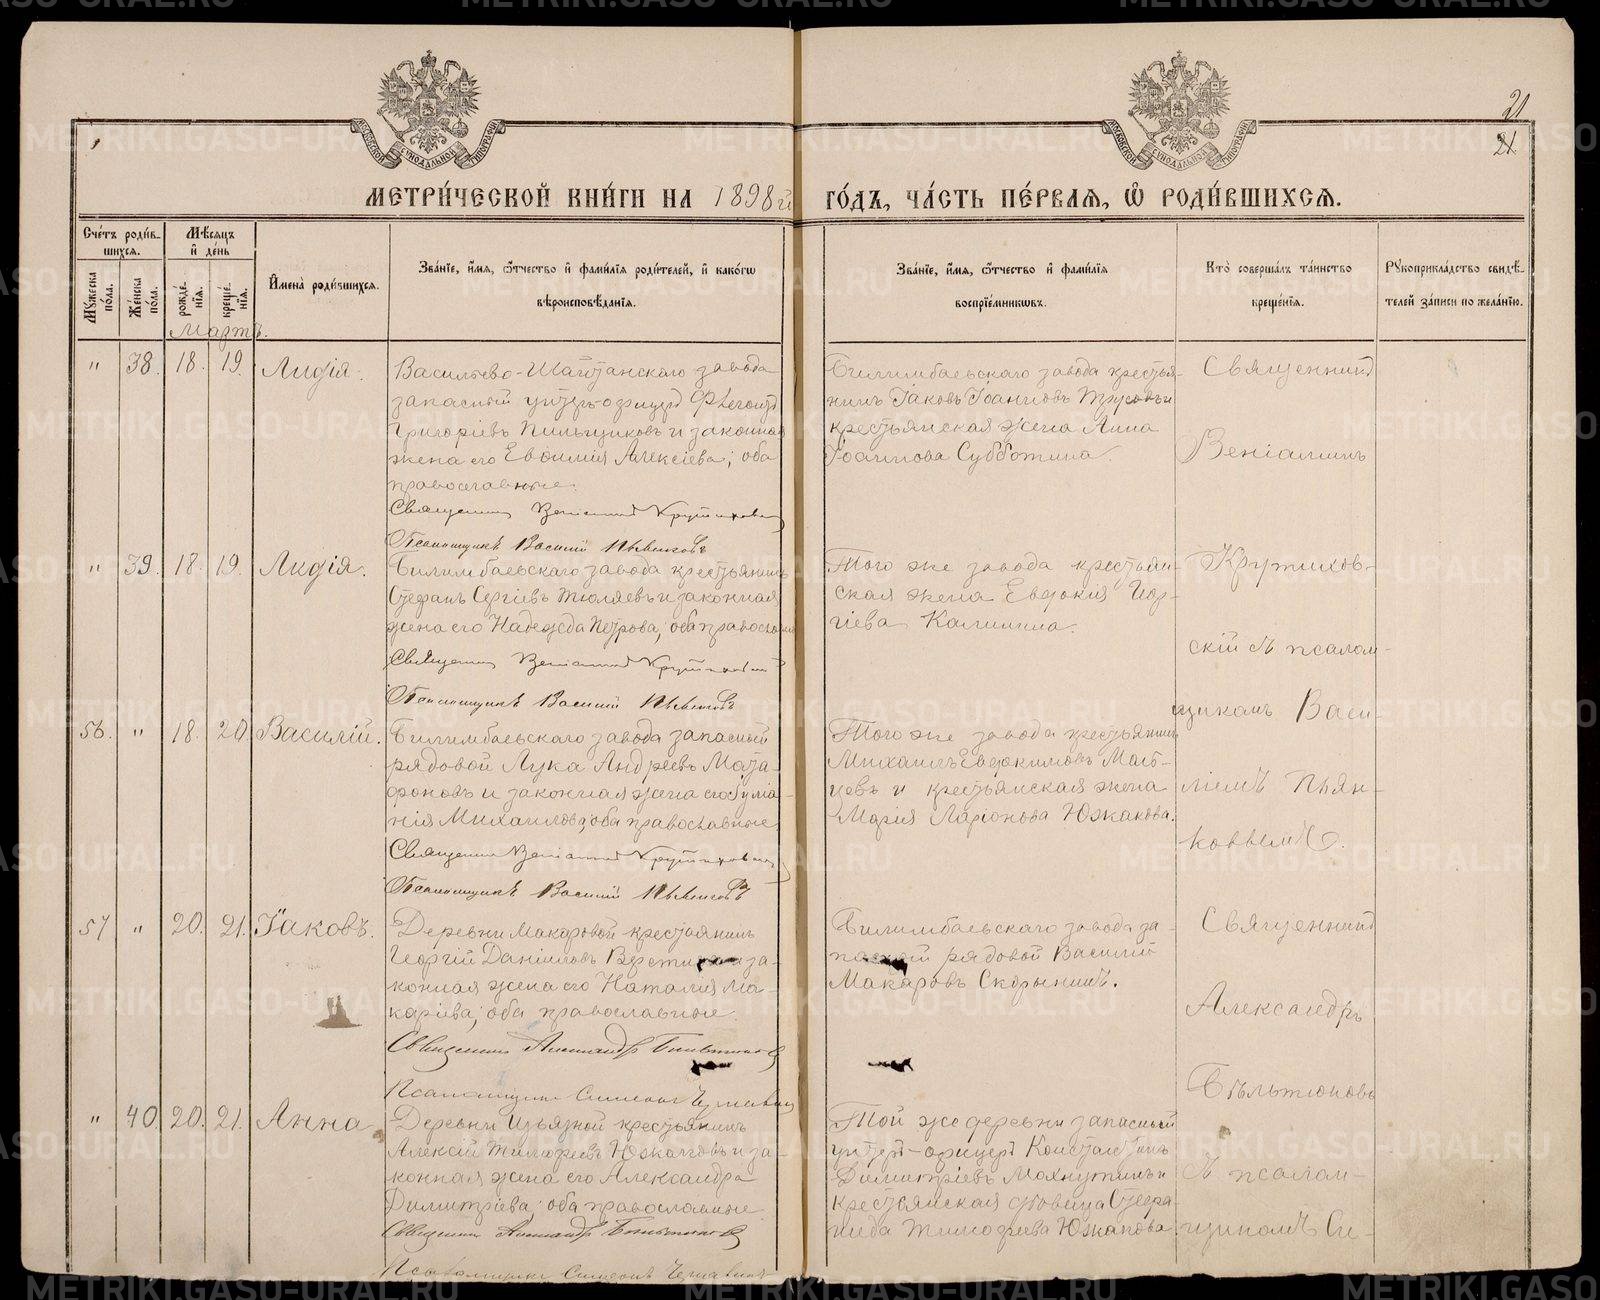 21
21.
МОСКОВСКОЙ СѴНОДАЛЬНОЙ ТИПОГРАФІИ
МОСКОВСКОЙ СѴНОДАЛЬНОЙ ТИПОГРАФІИ
МЕТРИ́ЧЕСКОЙ КНИ́ГИ НА 1898й ГО́ДЪ, ЧА́СТЬ ПЕ́РВАЯ, Ѽ РОДИ́ВШИХСЯ.
Сче́тъ роди́в-
шихся.
Мꙋ́жеска
по́ла.
Же́нска
по́ла.
Мѣ́сяцъ
и҆ де́нь
рожде́-
нїѧ.
креще́-
нїѧ.
Мартъ.
И҆мена̀ роди́вшихся.
Зва́нїе, и҆́мя, ѻ҆́тчество и҆ фами́лїя роди́телей, и҆ како́гѡ
вѣроисповѣ́данїя.
Зва́нїе, и҆́мя, ѻ҆́тчество и҆ фами́лїя
воспрїе́мникѡвъ.
Кто̀ соверша́лъ та́инство
креще́нїя.
Рꙋкоприкла́дство свидѣ́-
телей за́писи по жела́нїю.
" 38. 18. 19. Лидія.
Васильево-Шайтанскаго завода
запасный унтеръ-офицеръ
Григоріевъ Пильщиковъ и законная
жена его Евѳимія Алексіева; оба
православные.
Священникъ Веніаминъ Крутиховскій
Псаломщикъ Василій Пьянковъ
Билимбаевскаго завода крестья-
нинъ Іаковъ Іоанновъ Трусовъ и
крестьянская жена Анна
Іоаннова Субботина.
Священникъ
Веніаминъ
" 39. 18. 19. Лидія.
Билимбаевскаго завода крестьянинъ
Стефанъ Сергіевъ Тюляевъ и законная
жена его Надежда Петрова; оба православные
Священникъ Веніаминъ Крутиховскій
Псаломщикъ Василій Пьянковъ
Того же завода крестьян-
ская жена Евдокія Геор-
гіева Калинина.
Крутихов-
скій съ псалом-
56. " 18. 20. Василій.
Билимбаевскаго завода запасный
рядовой Лука Андреевъ Мата-
фоновъ и законная жена его Іуліа-
нія Михаилова; оба православные
Священникъ Веніаминъ Крутиховскій
Псаломщикъ Василій Пьянковъ
Того же завода крестьянинъ
Михаилъ Евдокимовъ
и крестьянская жена
Марія Ларіонова Южакова.
щикомъ Васи-
ліемъ Пьян-
ковымъ.
57 " 20. 21. Іаковъ.
Деревни Макаровой крестьянинъ
Георгій Даніиловъ и за-
конная жена его Наталія Ма-
каріева; оба православные.
Священникъ Александръ Бѣльтюковъ
Псаломщикъ Симеонъ
Билимбаевскаго завода за-
пасный рядовой Василій
Макаровъ Скорынинъ.
Священникъ
Александръ
Бѣльтюковъ
" 40. 20. 21. Анна
Деревни Извязной крестьянинъ
Алексій Тимофеевъ Южаковъ и за-
конная жена его Александра
Димитріева; оба православные
Священникъ Александръ Бѣльтюковъ
Псаломщикъ Симеонъ
Той же деревни запасный
унтеръ-офицеръ Константинъ
Димитріевъ Махнутинъ и
крестьянская дѣвица Стефа-
нида Тимофеева Южакова.
съ псалом-
щикомъ Си-
METRIKI.GASO-URAL.RU